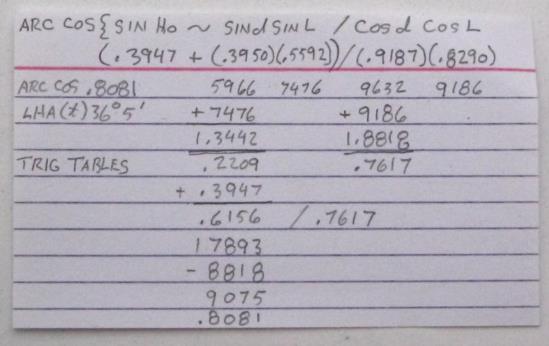 ARC COS{ SIN Ho ~ SINd SIN L / Cos d Cos L
(.3947 + (.3950)(.5592))/(.9187)(.8290)
ARC COS .8081 5966 7476 9632 9186
LHA(t) 36°5' +7476 +9186
1.3442 1.8818
TRIG TABLES .2209 .7617
+ .3947
.6156 / .7617
1.7893
- 8818
9075
.8081